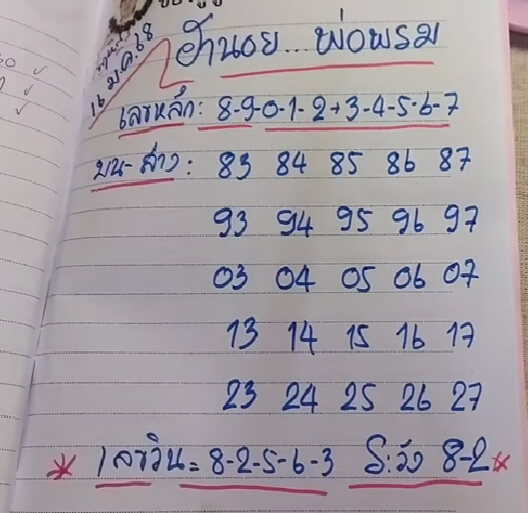 16 ม.ค.68
ฮานอย... พ่อพรม
เลขหลัก: 8-9-0-1-2+3-4-5-6-7
บน-ล่าง: 83 84 85 86 87
93 94 95 96 97
03 04 05 06 07
13 14 15 16 17
23 24 25 26 27
* เลขวิน = 8-2-5-6-3 ระวัง 8-2 *